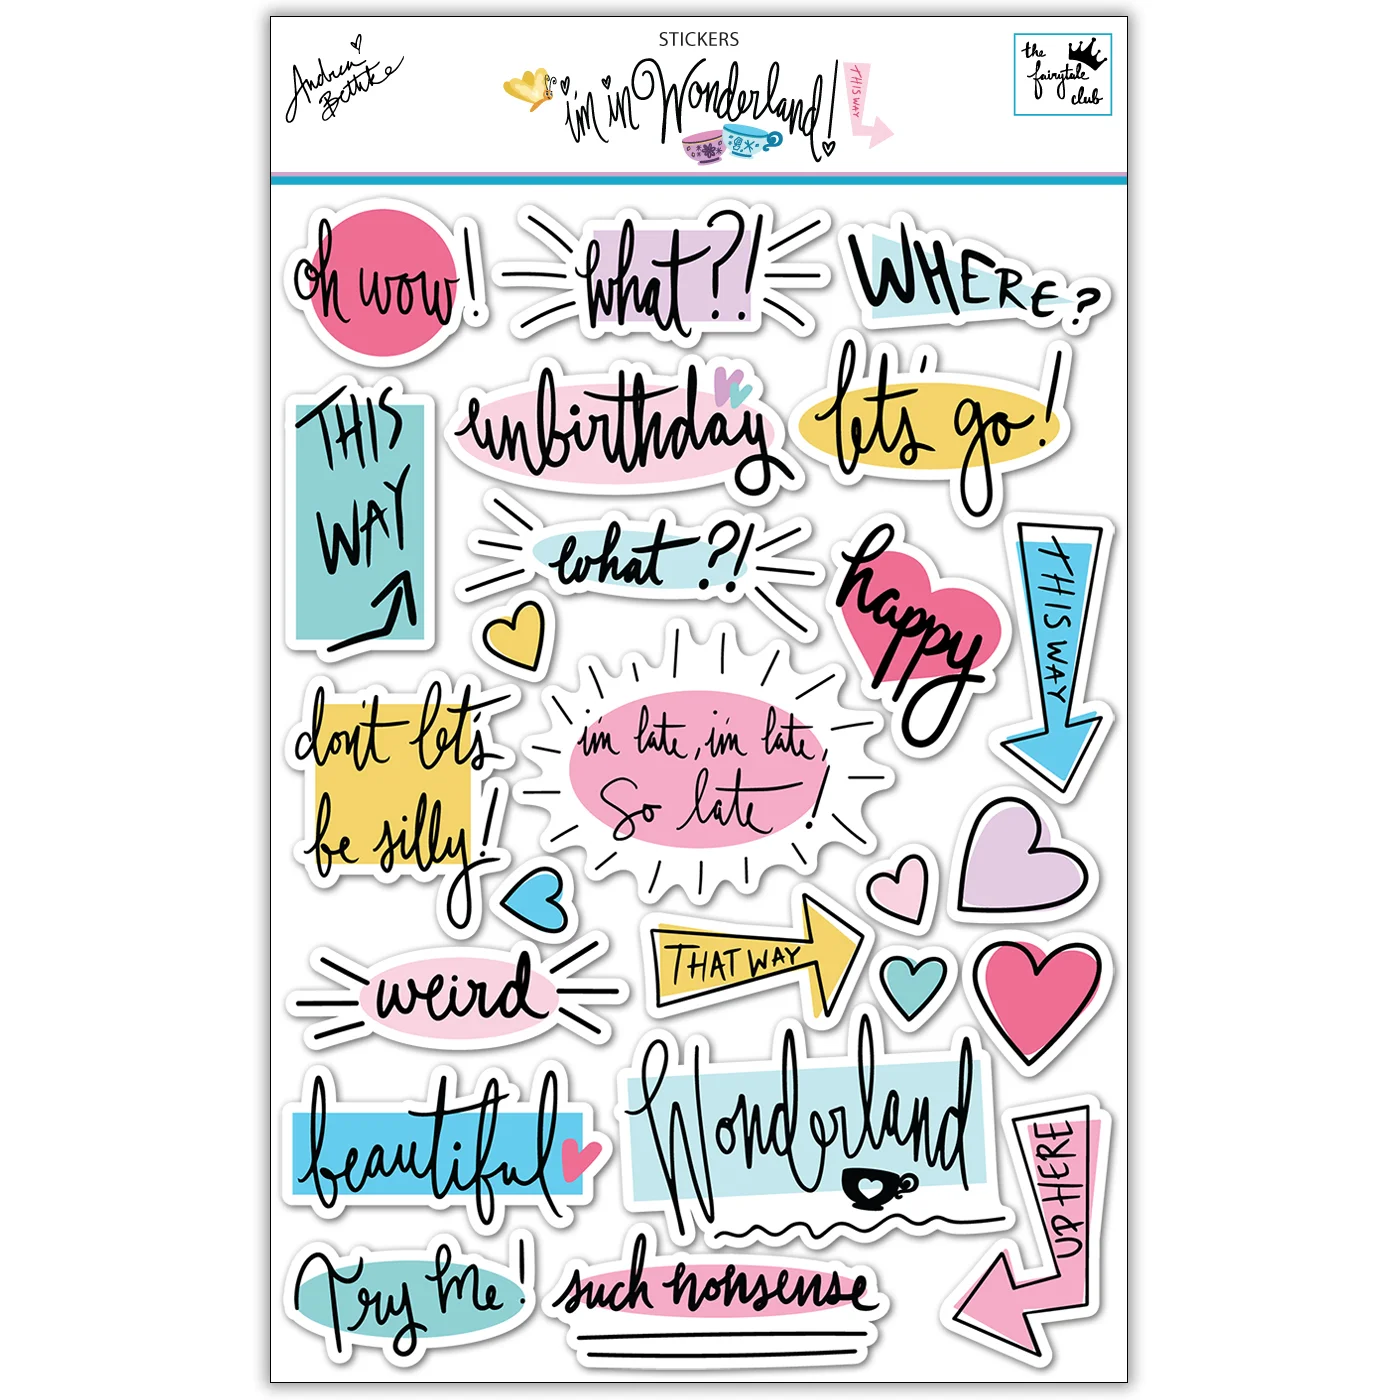 STICKERS
Andrea
Bethke
i'm in Wonderland!
THIS WAY
the
fairytale
club
oh wow!
what?!
WHERE?
THIS
WAY
unbirthday
let's go!
what?!
happy
THIS WAY
don't let's
be silly!
i'm late, i'm late,
So late!
THAT WAY
weird
beautiful
Wonderland
UP HERE
Try Me!
such nonsense